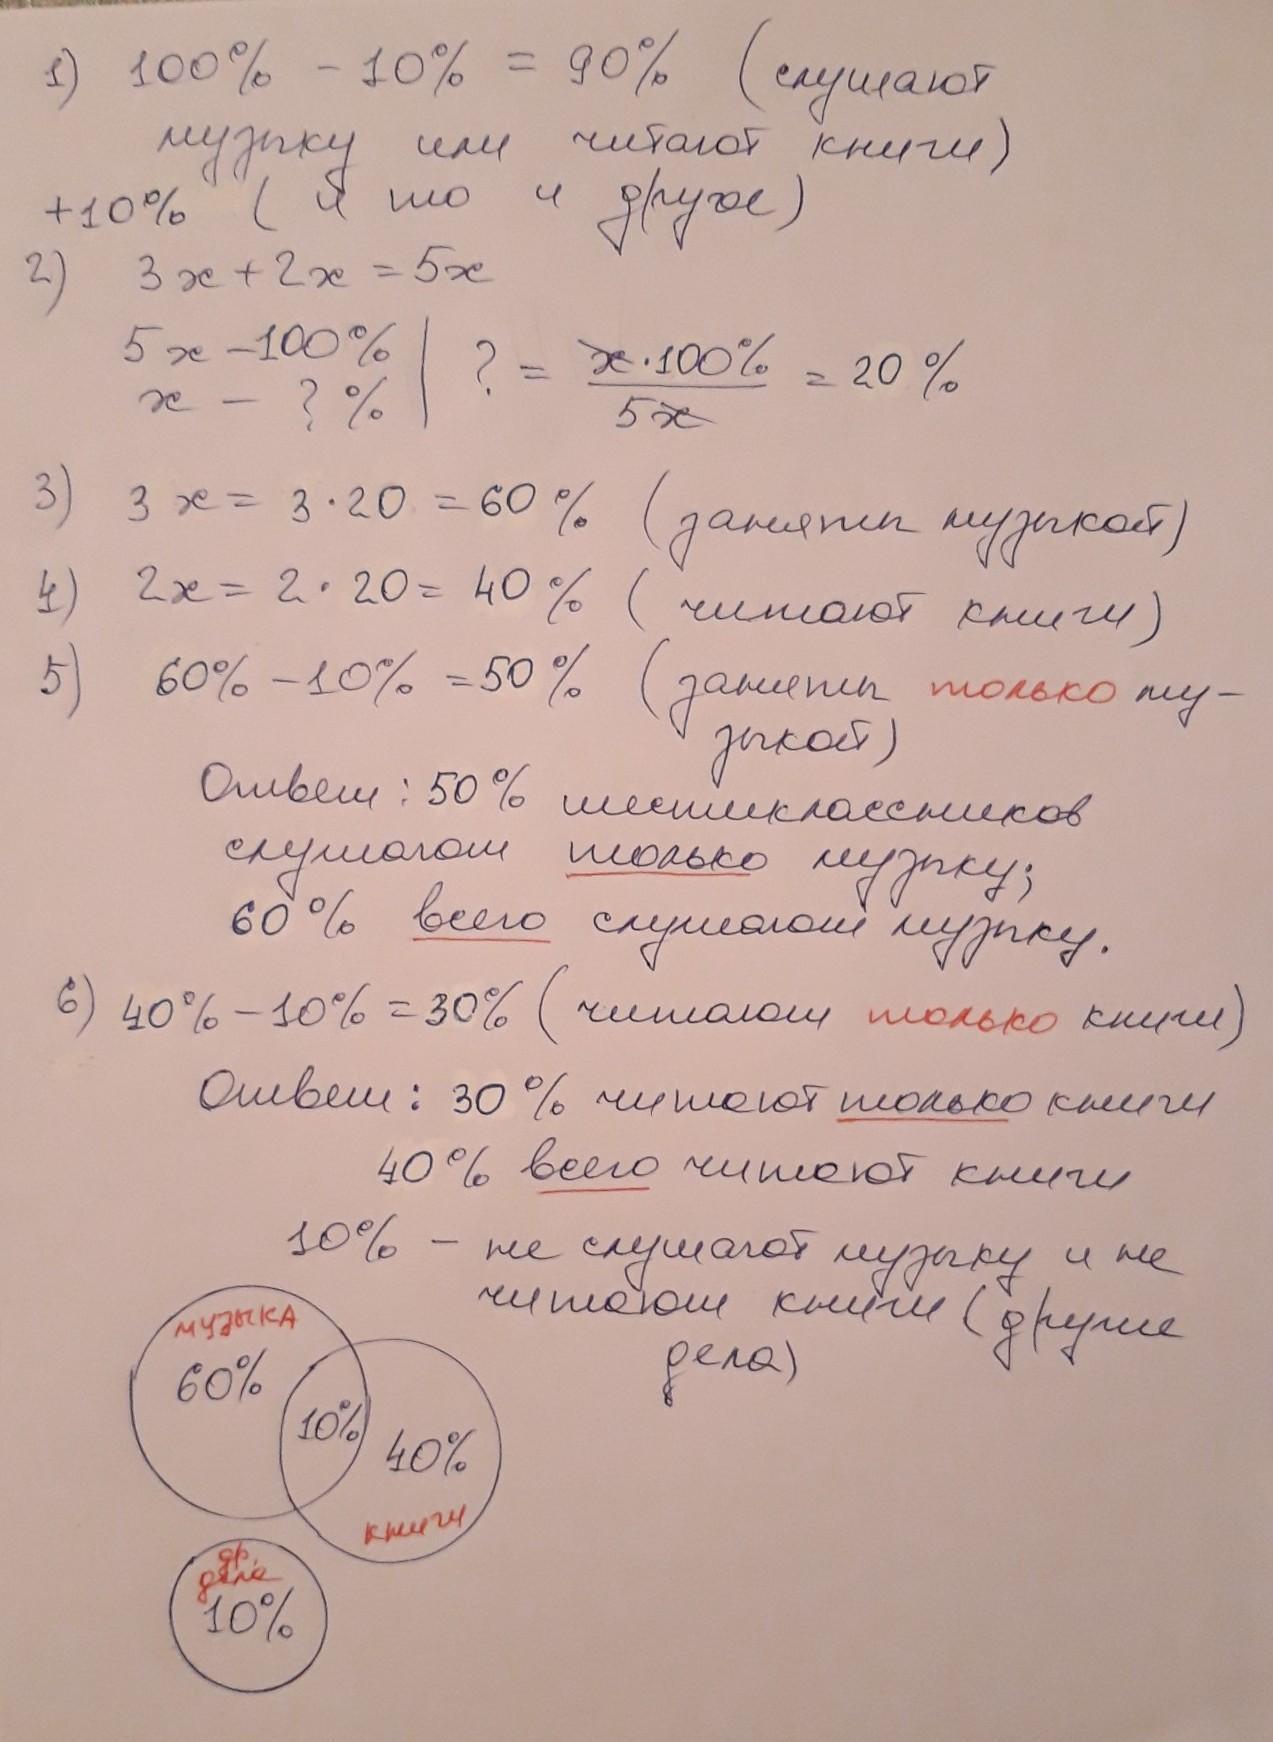 1) 100% - 10% = 90% (слушают
музыку или читают книги)
+10% (и то и другое)
2) 3x + 2x = 5x
5x - 100% | ? = x·100% / 5x = 20%
x - ? %
3) 3x = 3·20 = 60% (заняты музыкой)
4) 2x = 2·20 = 40% (читают книги)
5) 60% - 10% = 50% (заняты только му-
зыкой)
Ответ: 50% шестиклассников
слушают только музыку;
60% всего слушают музыку.
6) 40% - 10% = 30% (читают только книги)
Ответ: 30% читают только книги
40% всего читают книги
10% - не слушают музыку и не
читают книги (другие
дела)
музыка
60%
10%
40%
книги
др.
дела
10%